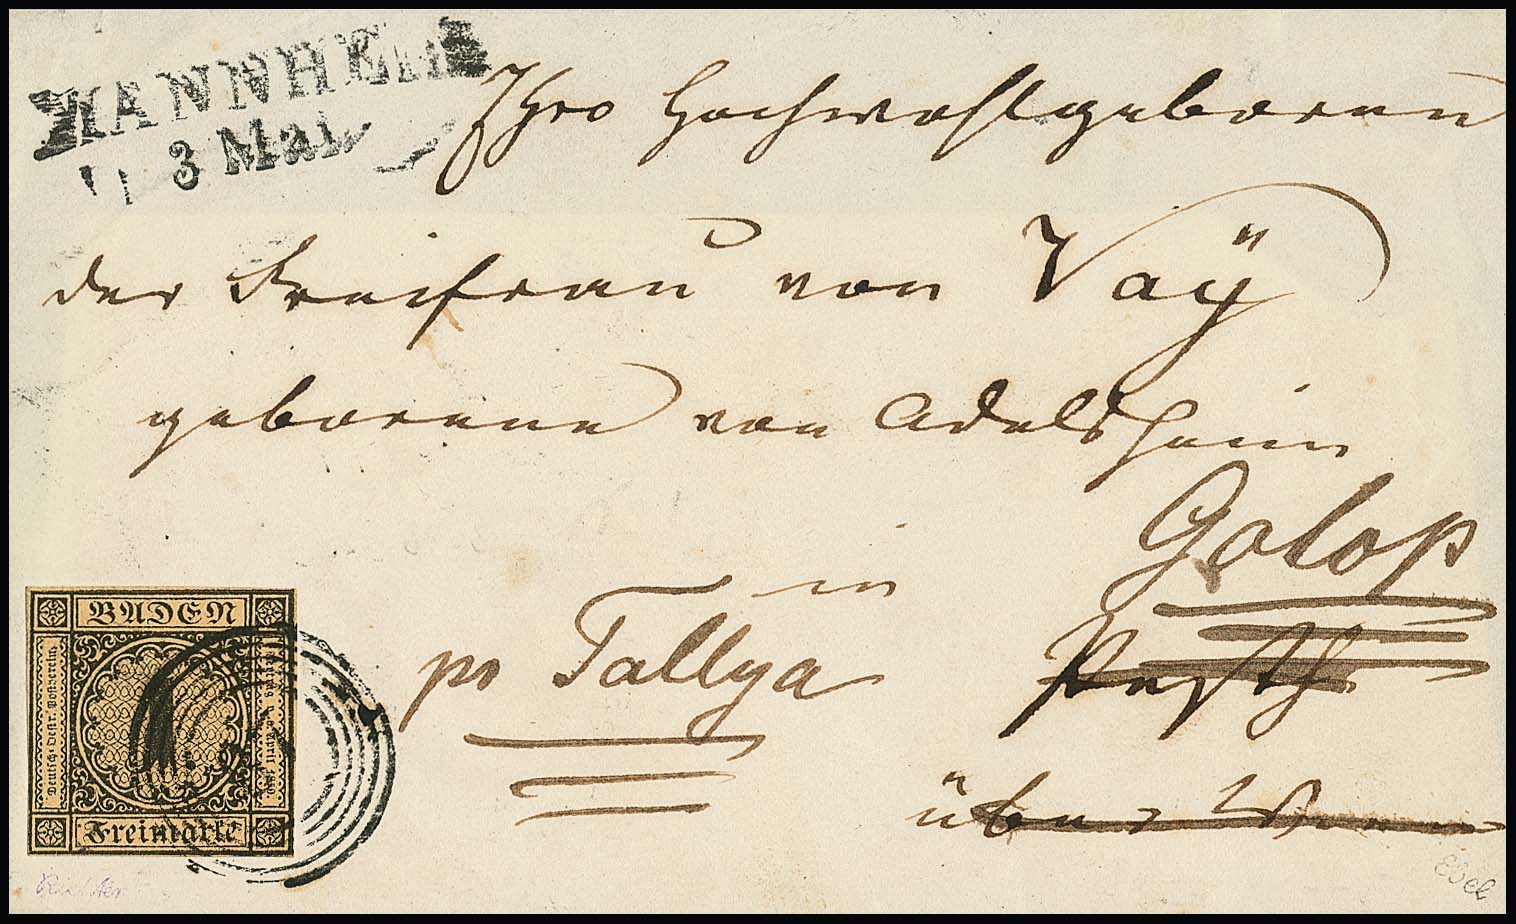 MANNHEIM
3 Mai
Ihro Hochwohlgeboren
der Freifrau von Vaÿ
geborene von Adelsheim
in Golop
pr Tallya
Pesth
über Wien
BADEN
Deutsch-Oestr. Postverein
Freimarke
Richter
Ebel